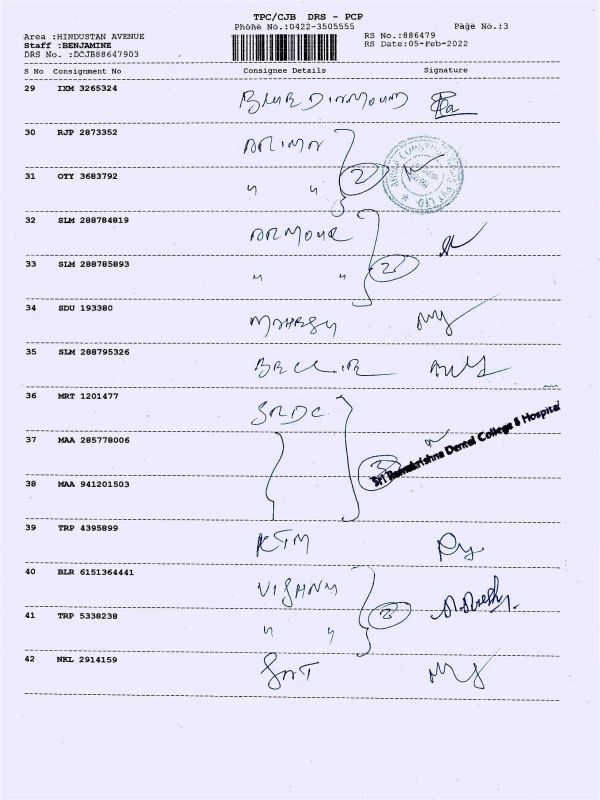 TPC/CJB DRS - PCP
Phone No.:0422-3505555 Page No.:3
Area :HINDUSTAN AVENUE RS No.:886479
Staff :BENJAMINE RS Date:05-Feb-2022
DRS No. :DCJB88647903
S No Consignment No Consignee Details Signature
29 IXM 3265324 BLUE DIAMOUND
30 RJP 2873352
31 OTY 3683792 " " 2
32 SLM 288784819 ARMOUR
33 SLM 288785893 " " 2
34 SDU 193380 MAHESH
35 SLM 288795326
36 MRT 1201477 SRDC
37 MAA 285778006
Sri Ramakrishna Dental College & Hospital
38 MAA 941201503 3
39 TRP 4395899 KTM
40 BLR 6151364441 VISHNU
41 TRP 5338238 " " 2
42 NKL 2914159